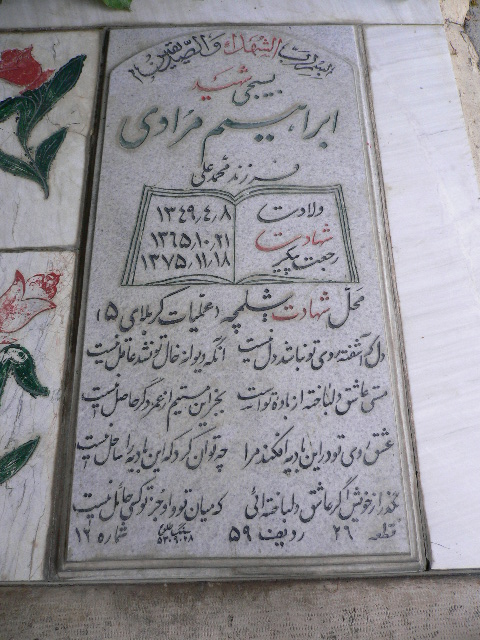 بسم رب الشهداء و الصدیقین
بسیجی شهید
ابراهیم مرادی
فرزند محمدعلی
ولادت ۱۳۴۹٫۴٫۸
شهادت ۱۳۶۵٫۱۰٫۲۱
رجعت پیکر ۱۳۷۵٫۱۱٫۱۸
محل شهادت شلمچه (عملیات کربلای ۵)
دل که آشفته روی تو نباشد دل نیست آنکه دیوانه خال تو نشد عاقل نیست
مستی عاشق دلباخته از باده توست بجز این مستیم از عمر دگر حاصل نیست
عشق روی تو در این بادیه افکند مرا چه توان کرد که این بادیه را ساحل نیست
بگذر از خویش اگر عاشق دلباخته‌ائی که میان تو و او جز تو کسی حائل نیست
قطعه ۲۶ ردیف ۵۹ شماره ۱۶